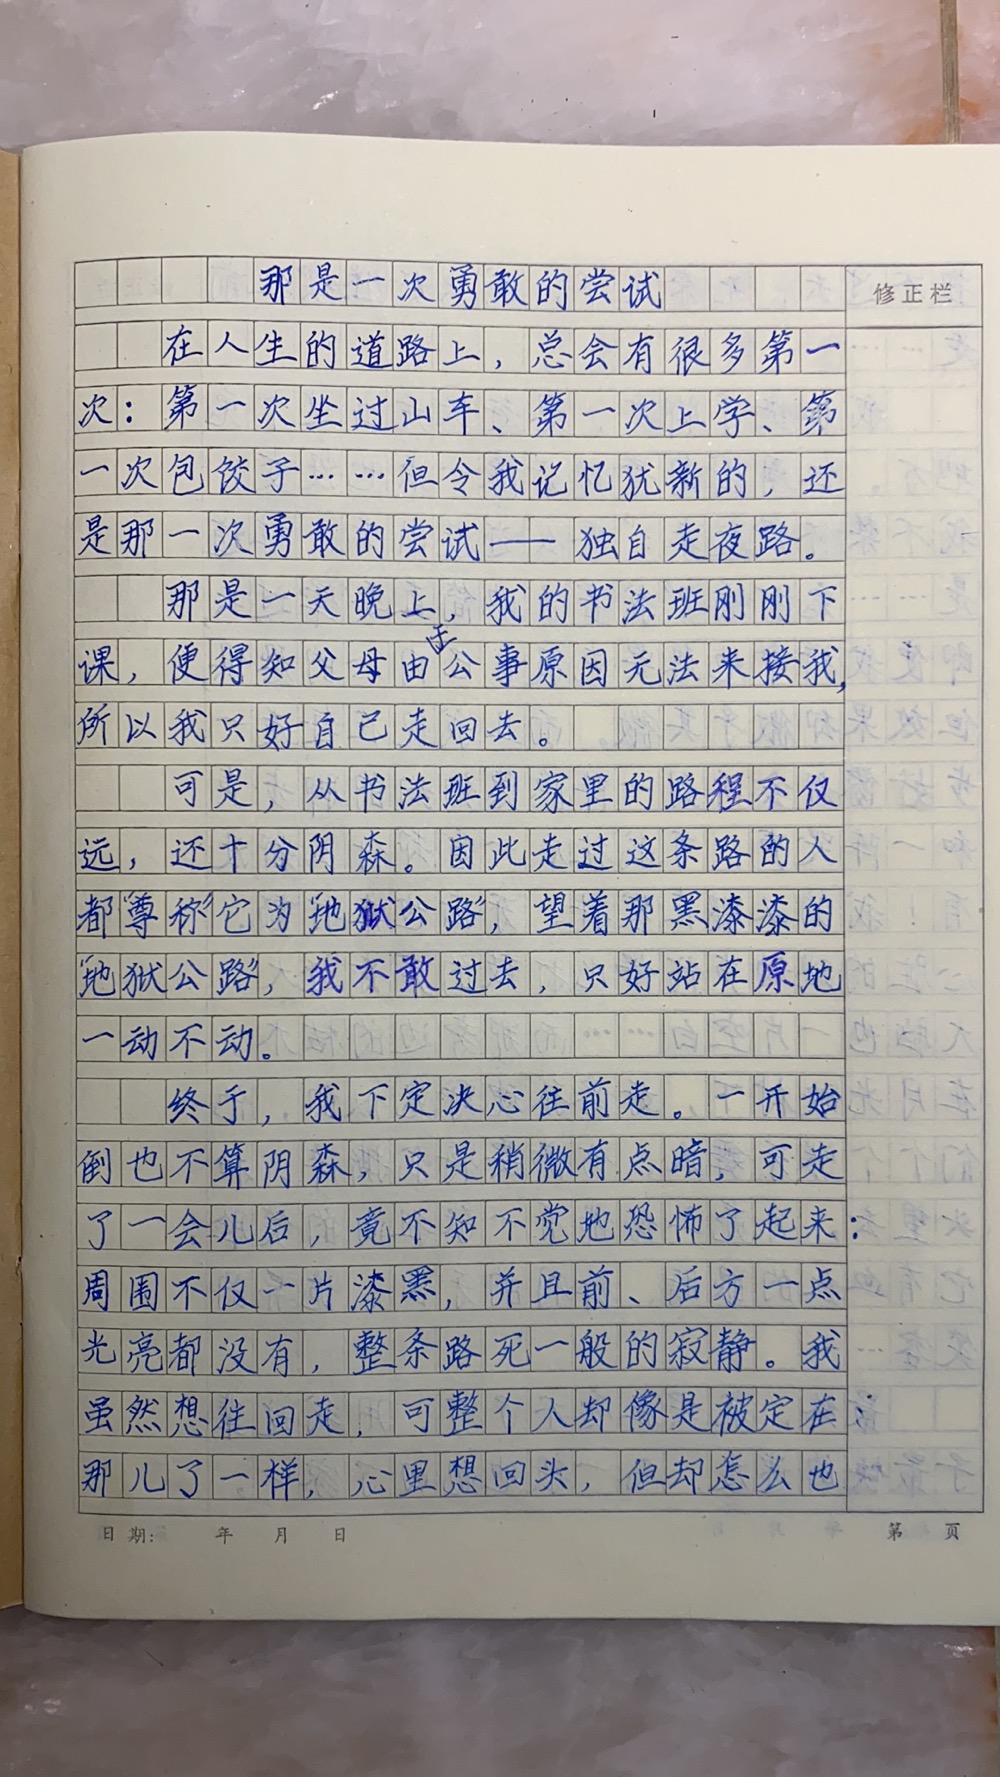 那是一次勇敢的尝试
修正栏
在人生的道路上，总会有很多第一
次：第一次坐过山车、第一次上学、第
一次包饺子……但令我记忆犹新的，还
是那一次勇敢的尝试——独自走夜路。
那是一天晚上，我的书法班刚刚下
课，便得知父母由于公事原因无法来接我，
所以我只好自己走回去。
可是，从书法班到家里的路程不仅
远，还十分阴森。因此走过这条路的人
都“尊称”它为“地狱公路”，望着那黑漆漆的
“地狱公路”，我不敢过去，只好站在原地
一动不动。
终于，我下定决心往前走。一开始
倒也不算阴森，只是稍微有点暗，可走
了一会儿后，竟不知不觉地恐怖了起来：
周围不仅一片漆黑，并且前、后方一点
光亮都没有，整条路死一般的寂静。我
虽然想往回走，可整个人却像是被定在
那儿了一样，心里想回头，但却怎么也
日期： 年 月 日 第 页